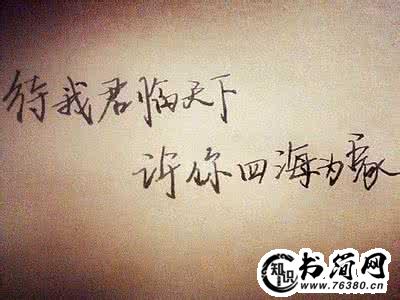 待我君临天下
许你四海为家
知识
书简网
www.76380.cn